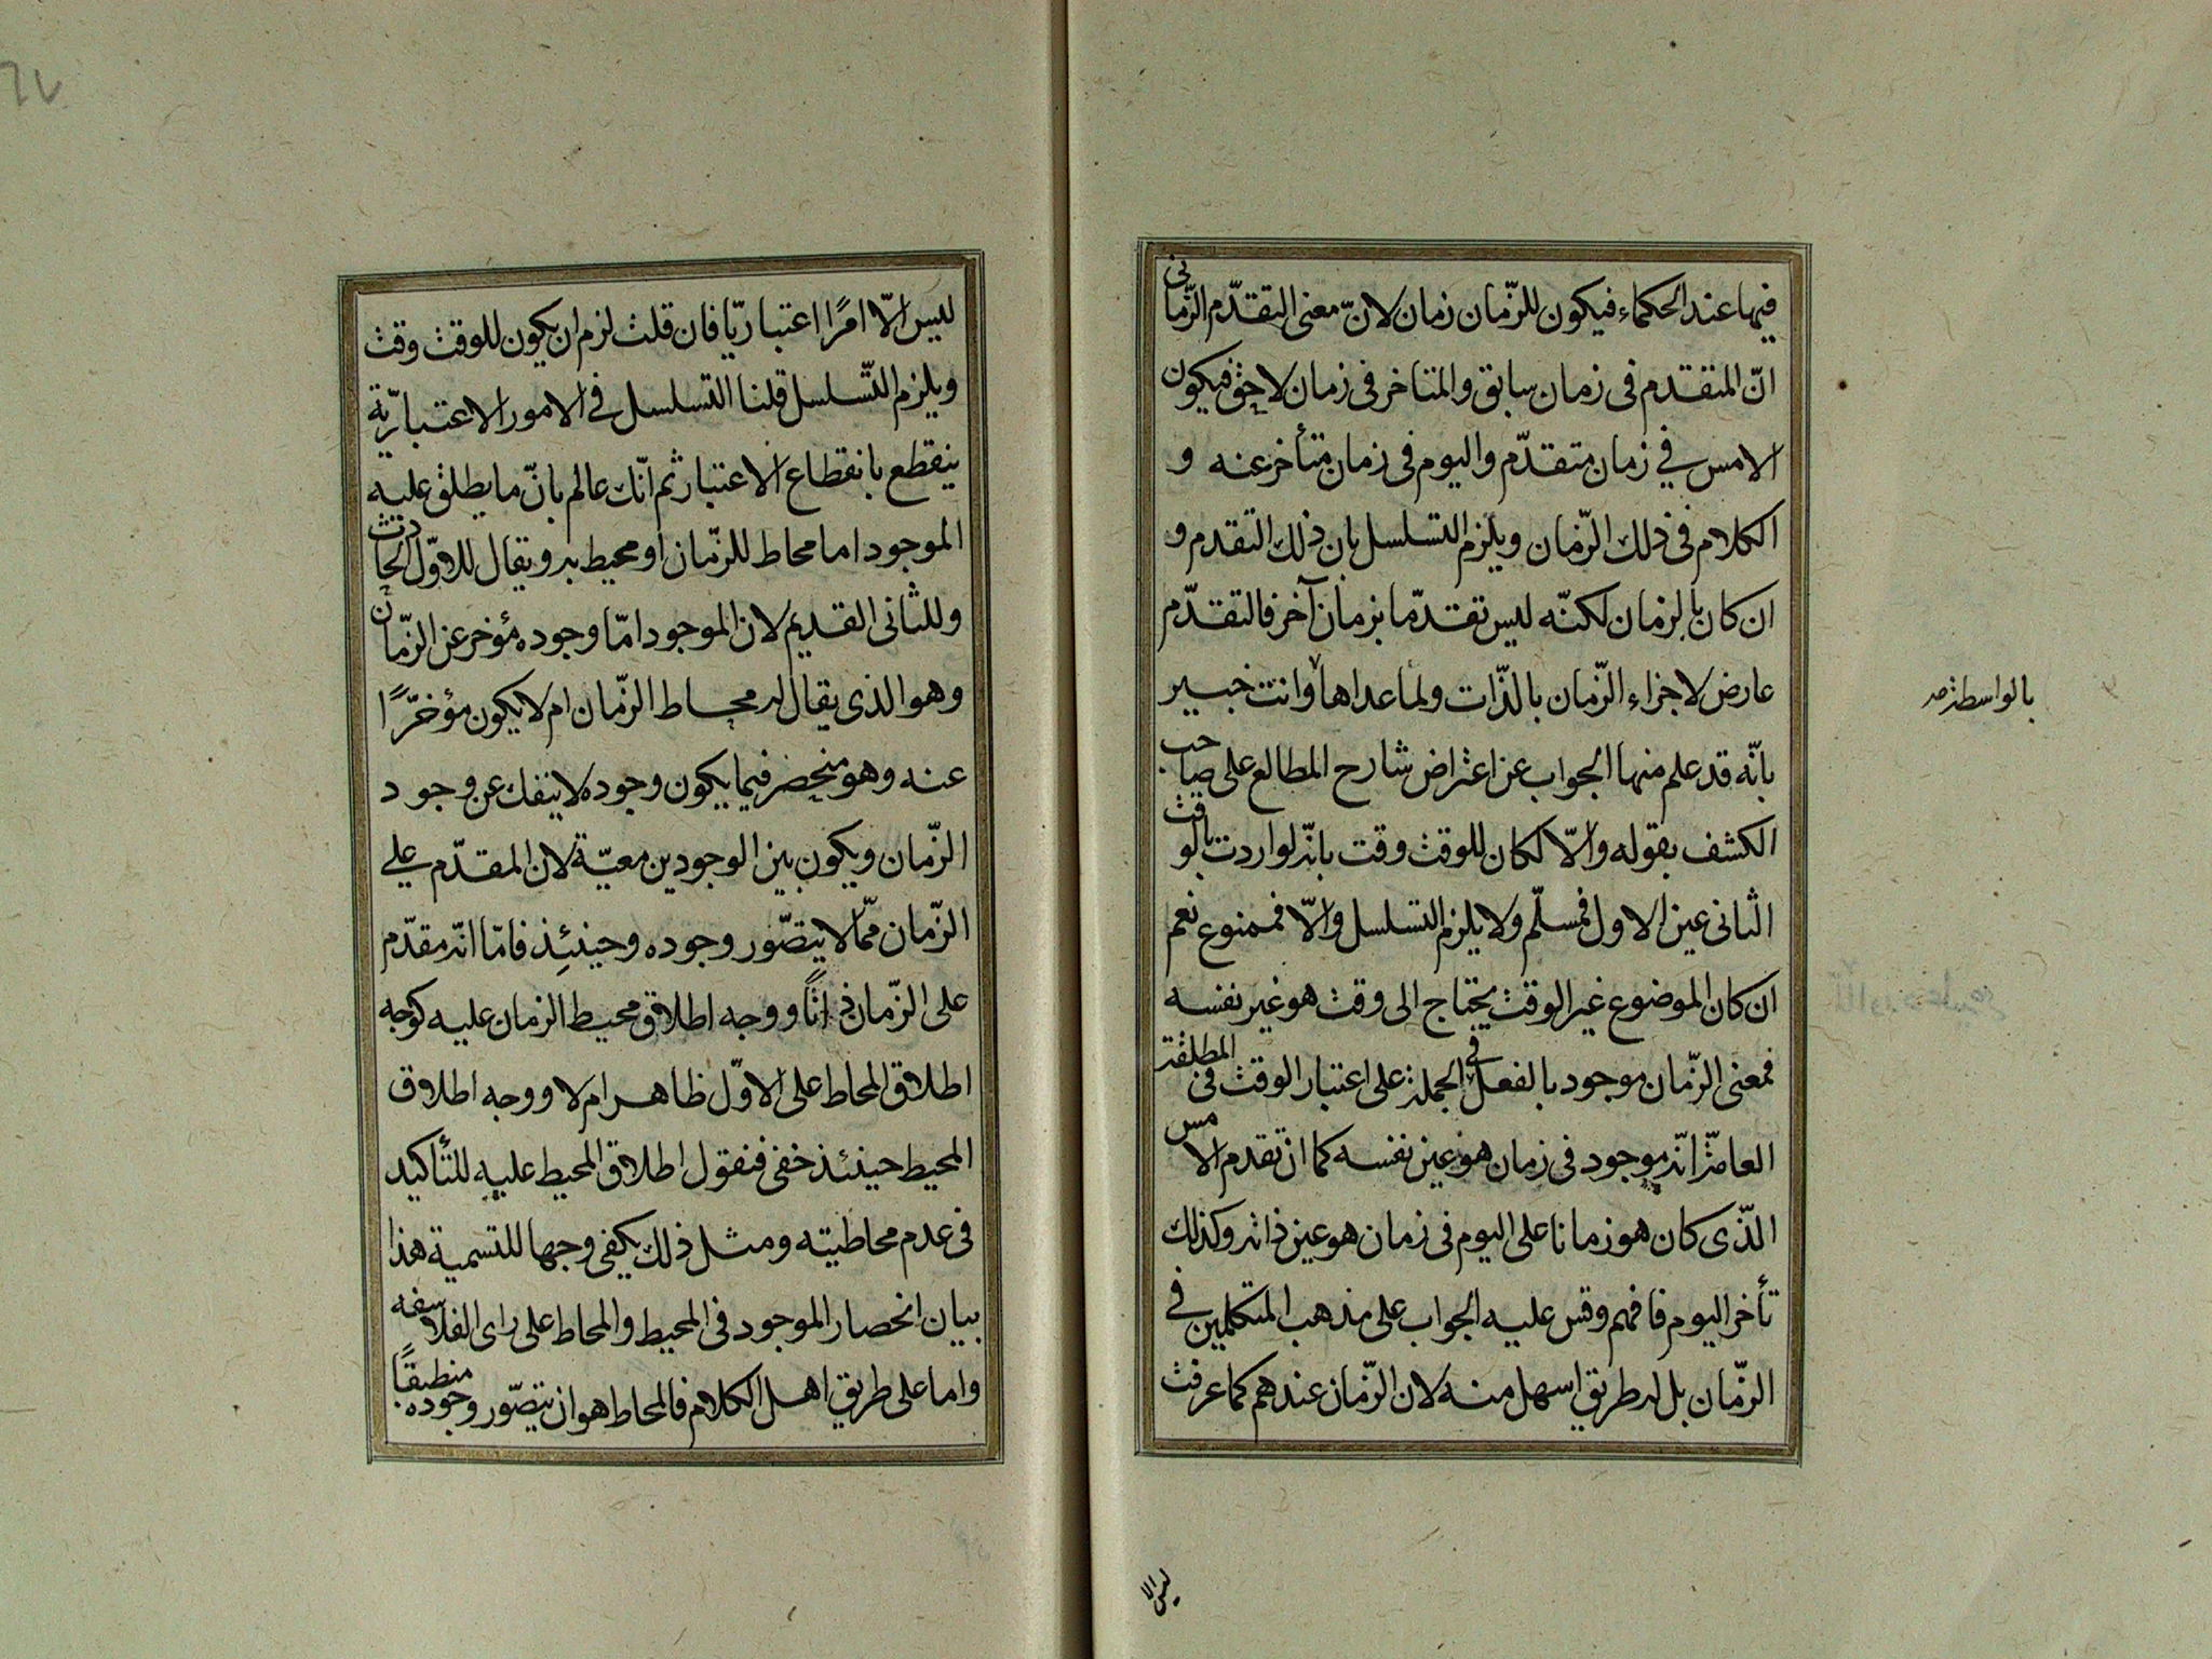 فيها عند الحكماء فيكون للزّمان زمان لانّ معنى التقدّم الزّمانى
انّ المتقدم فى زمان سابق والمتاخر فى زمان لاحق فيكون
الامس في زمان متقدّم واليوم فى زمان متأخر عنه و
الكلام فى ذلك الزّمان ويلزم التسلسل بان ذلك التقدم و
ان كان بالزمان لكنّه ليس تقدّما بزمان آخر فالتقدّم
عارض لاجزاء الزّمان بالذّات ولما عداها وانت خبير
بالواسطة صح
بانّه قد علم منها الجواب عن اعتراض شارح المطالع على صاحب
الكشف بقوله والّا لكان للوقت وقت بانّه لو اردت بالوقت
الثانى عين الاول فمسلّم ولا يلزم التسلسل والّا فممنوع نعم
ان كان الموضوع غير الوقت يحتاج الى وقت هو غير نفسه
فمعنى الزّمان موجود بالفعل فى الجملة على اعتبار الوقت فى المطلقة
العامّة انّه موجود فى زمان هو عين نفسه كما انّ تقدم الامس
الّذى كان هو زمانا على اليوم فى زمان هو عين ذاته وكذلك
تأخر اليوم فافهم وقس عليه الجواب على مذهب المتكلمين في
الزّمان بل له طريق اسهل منه لان الزّمان عندهم كما عرفت
ليس الا
ليس الّا امرًا اعتباريّا فان قلت لزم ان يكون للوقت وقت
ويلزم التّسلسل قلنا التسلسل في الامور الاعتباريّة
ينقطع بانقطاع الاعتبار ثم انّك عالم بانّ ما يطلق عليه
الموجود اما محاط للزّمان او محيط به ويقال للاوّل الحادث
وللثانى القديم لان الموجود امّا وجوده مؤخر عن الزّمان
وهو الذى يقال له محاط الزّمان ام لا يكون مؤخرًا
عنه وهو منحصر فيما يكون وجوده لا ينفك عن وجود
الزّمان ويكون بين الوجودين معيّة لان المقدّم على
الزّمان ممّا لا يتصّور وجوده وحينئذ فامّا انّه مقدّم
على الزّمان ذاتًا ووجه اطلاق محيط الزمان عليه كوجه
اطلاق المحاط على الاوّل ظاهر ام لا ووجه اطلاق
المحيط حينئذ خفى فنقول اطلاق المحيط عليه للتأكيد
فى عدم محاطيته ومثل ذلك يكفى وجها للتسمية هذا
بيان انحصار الموجود فى المحيط والمحاط على راى الفلاسفه
واما على طريق اهل الكلام فالمحاط هو ان يتصّور وجوده منطبقًا